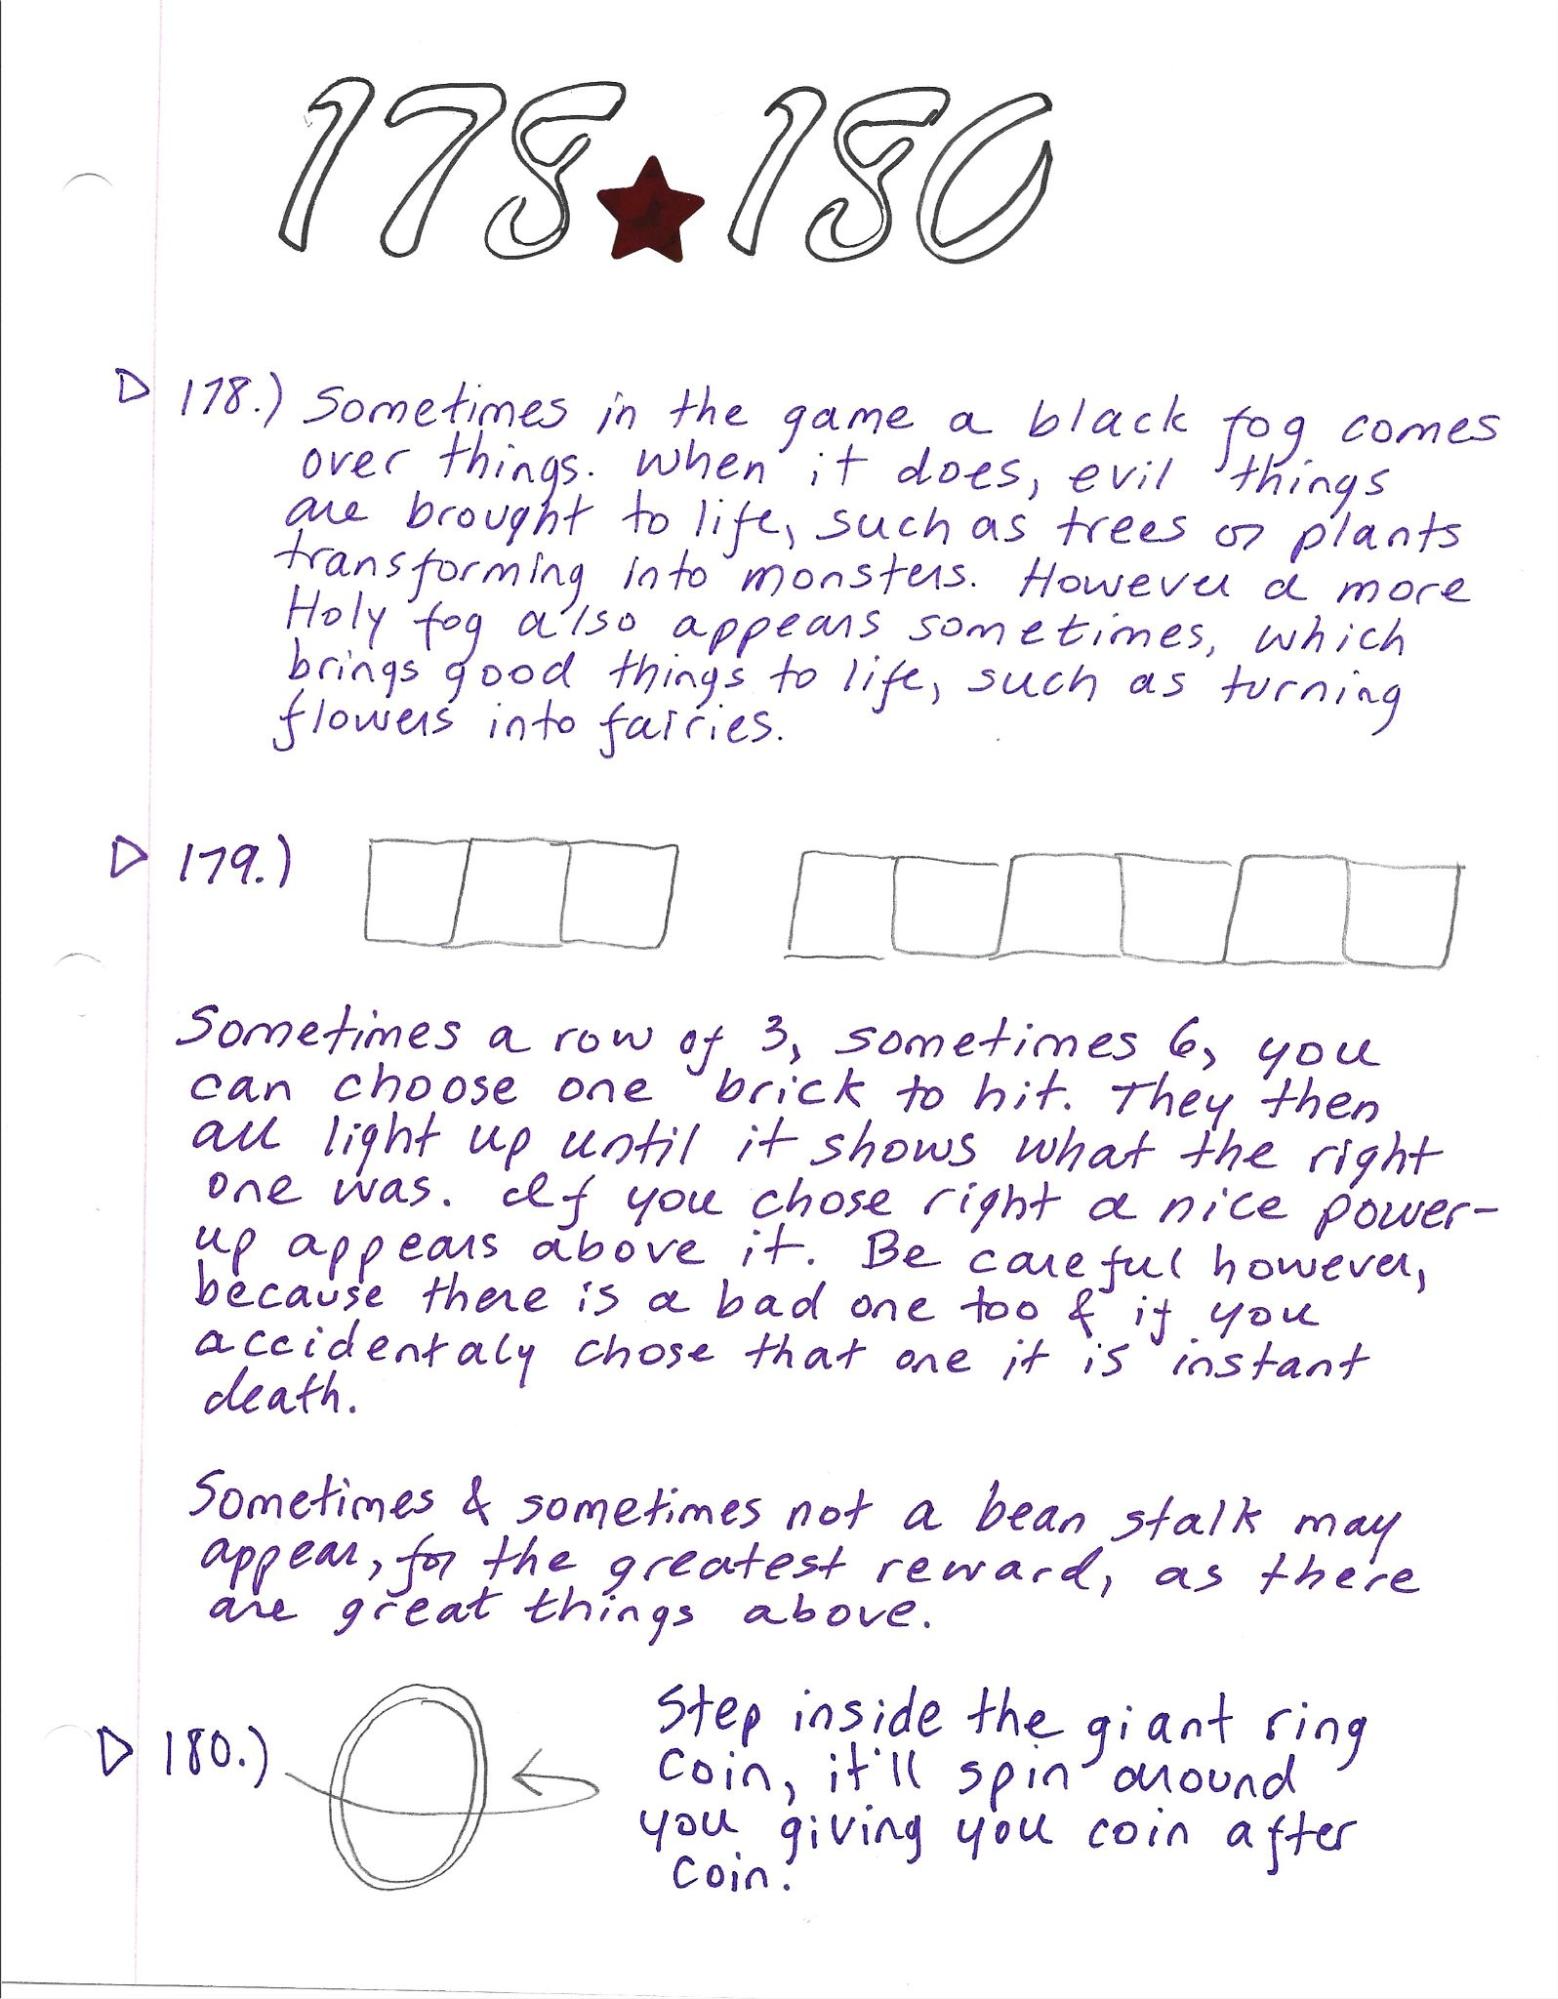 178★180
178.) Sometimes in the game a black fog comes
over things. When it does, evil things
are brought to life, such as trees or plants
transforming into monsters. However a more
Holy fog also appears sometimes, which
brings good things to life, such as turning
flowers into fairies.
179.)
Sometimes a row of 3, sometimes 6, you
can choose one brick to hit. They then
all light up until it shows what the right
one was. If you chose right a nice power-
up appears above it. Be careful however,
because there is a bad one too & if you
accidentaly chose that one it is instant
death.
Sometimes & sometimes not a bean stalk may
appear, for the greatest reward, as there
are great things above.
180.)
Step inside the giant ring
coin, it'll spin around
you giving you coin after
coin.